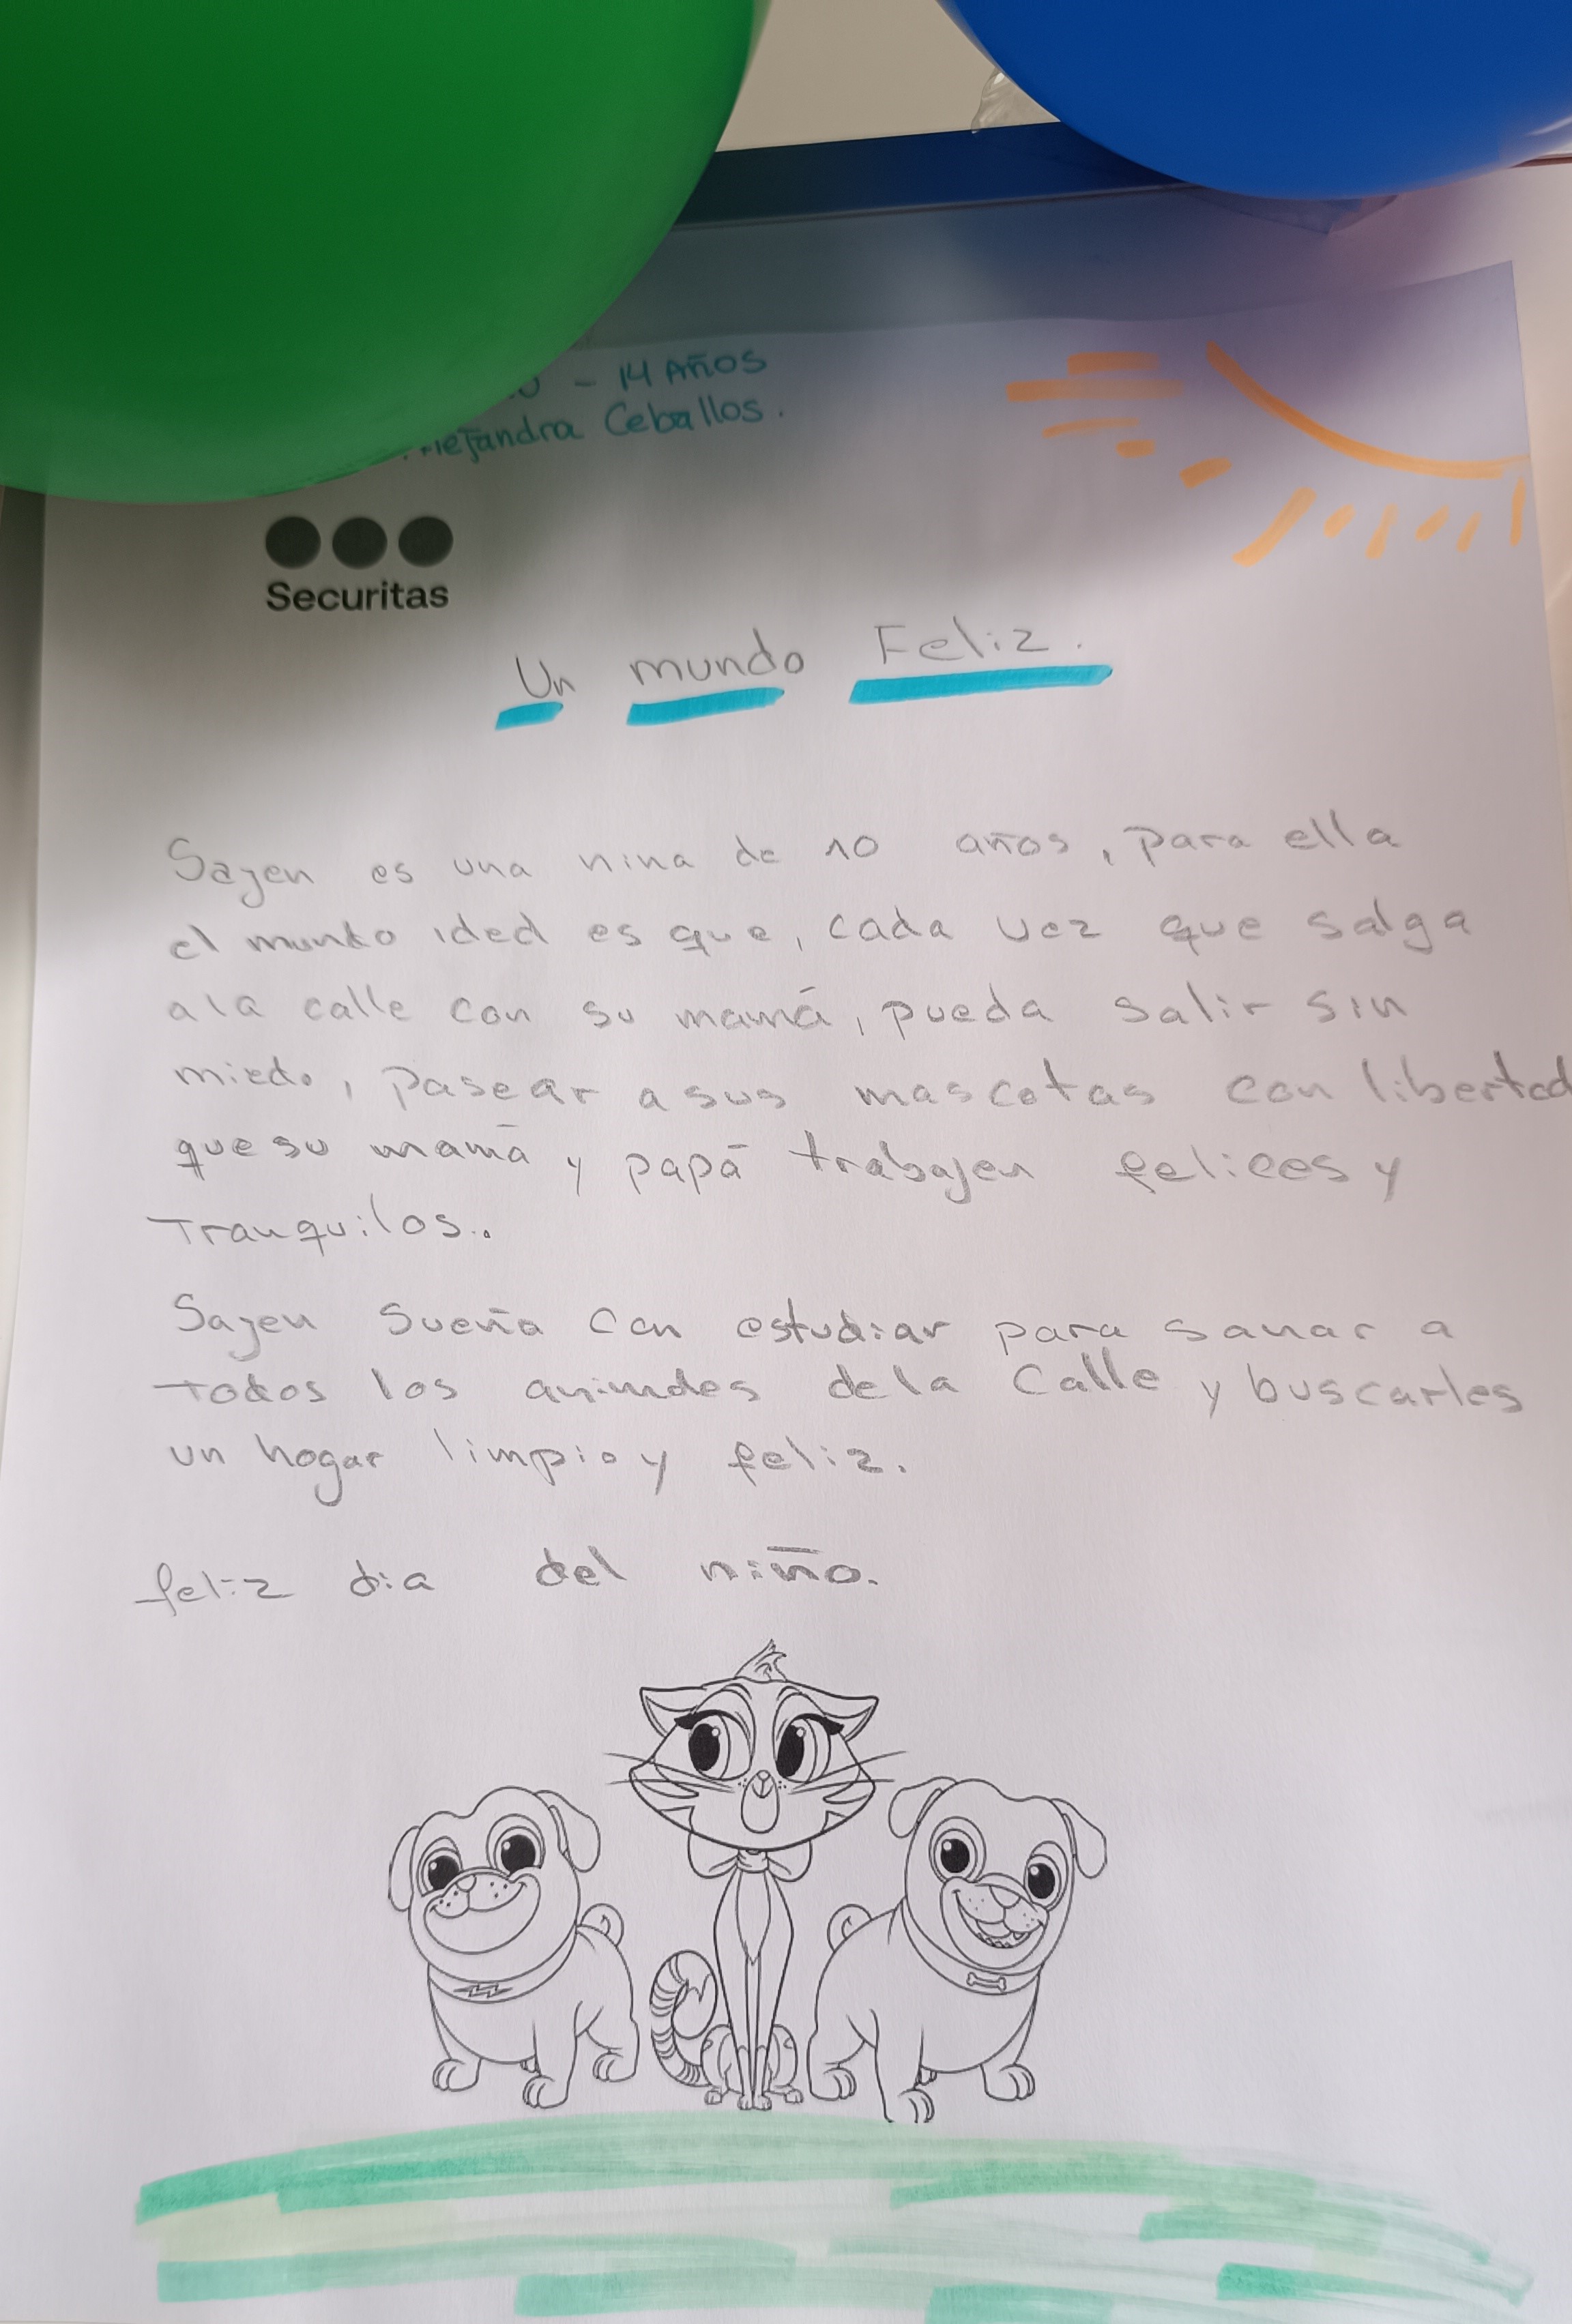 - 14 Años
Alejandra Ceballos.
Securitas
Un mundo Feliz.
Sajen es una nina de 10 años, para ella
el mundo ideal es que, cada vez que salga
a la calle con su mamá, pueda salir sin
miedo, pasear a sus mascotas con libertad
que su mamá y papá trabajen felices y
Tranquilos..
Sajen sueña con estudiar para sanar a
todos los animales de la Calle y buscarles
un hogar limpio y feliz.
feliz dia del niño.